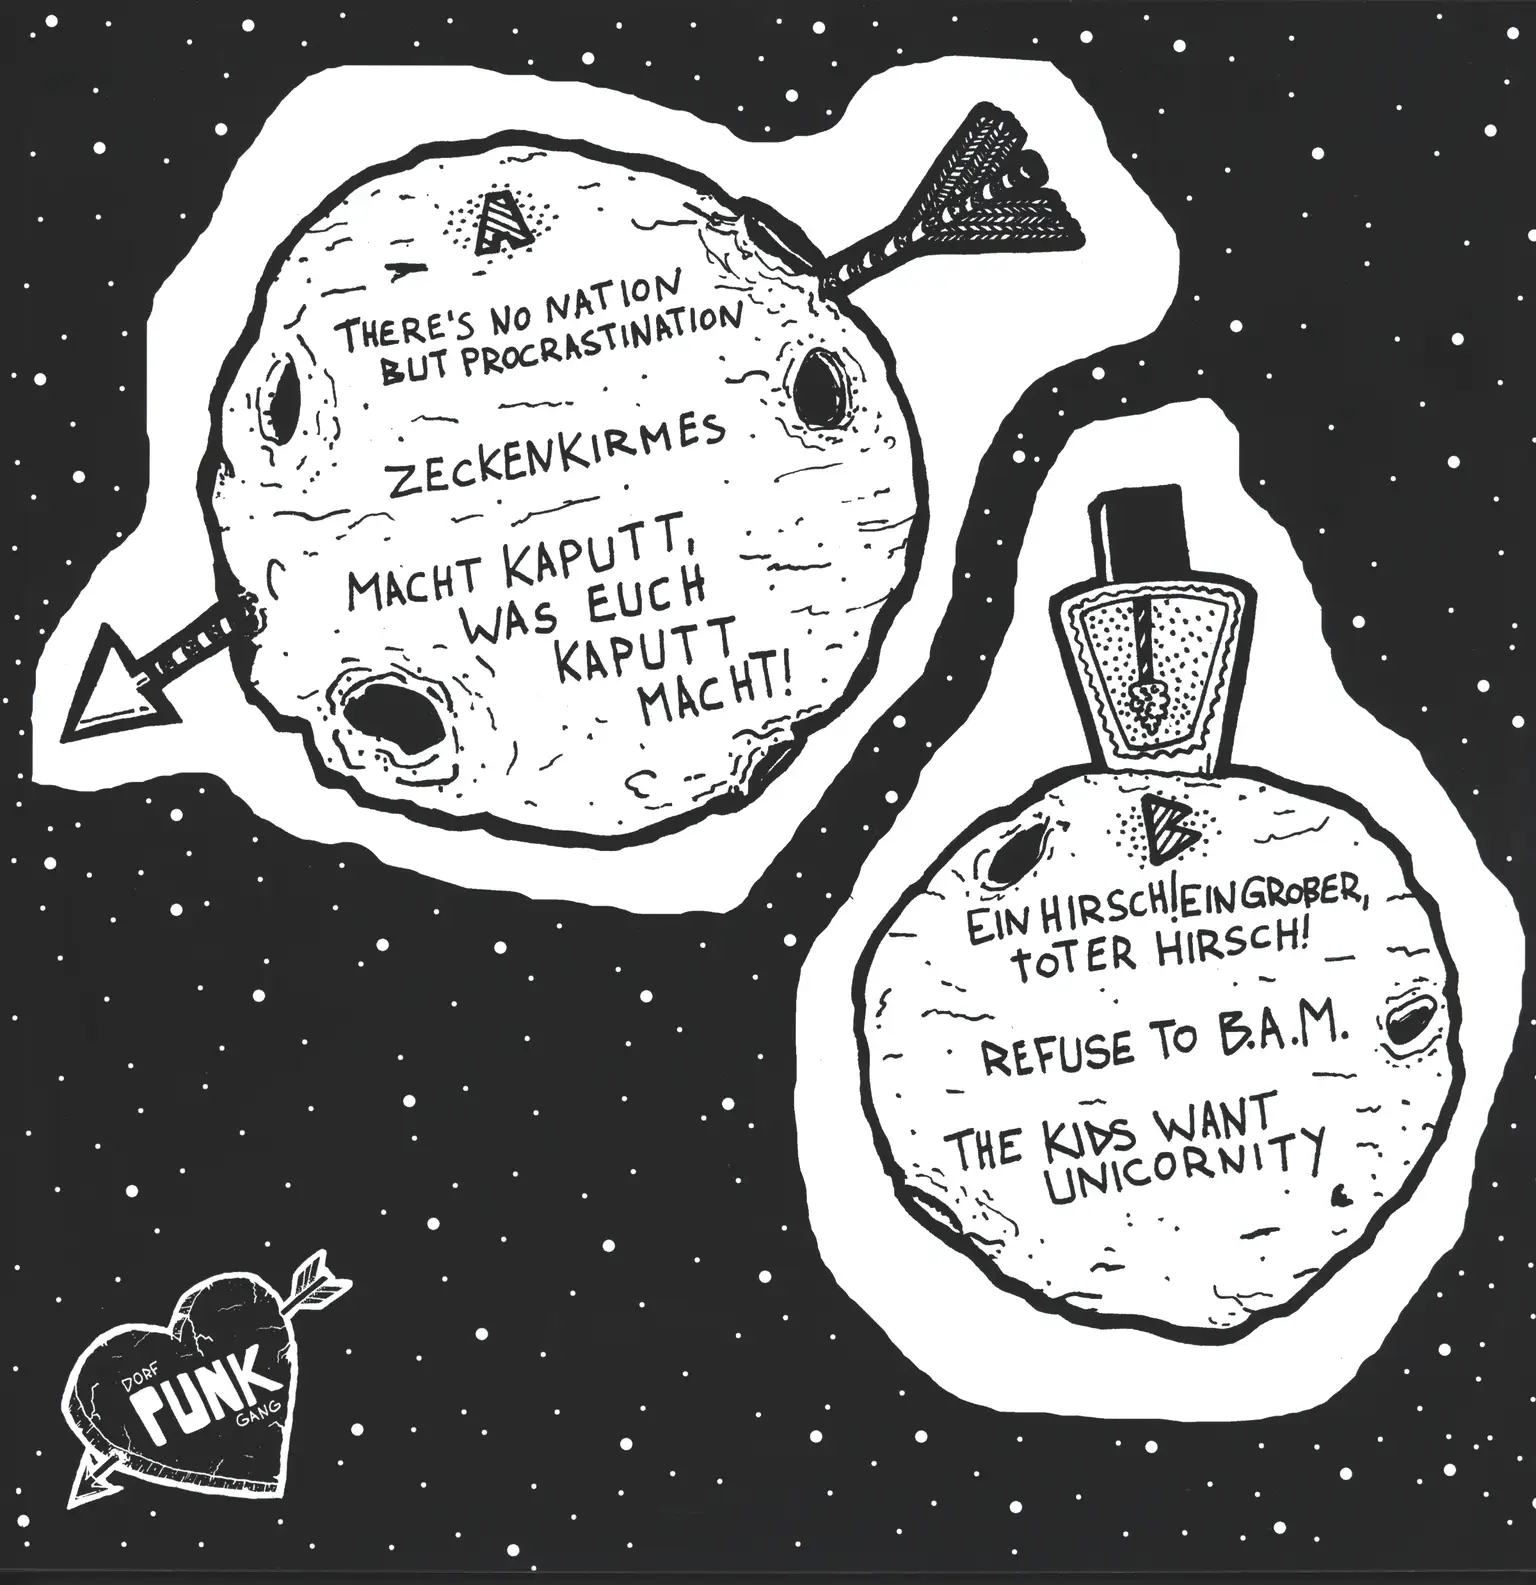 A
THERE'S NO NATION
BUT PROCRASTINATION
ZECKENKIRMES
MACHT KAPUTT,
WAS EUCH
KAPUTT
MACHT!
B
EIN HIRSCH! EIN GROBER,
TOTER HIRSCH!
REFUSE TO B.A.M.
THE KIDS WANT
UNICORNITY
DORF
PUNK
GANG